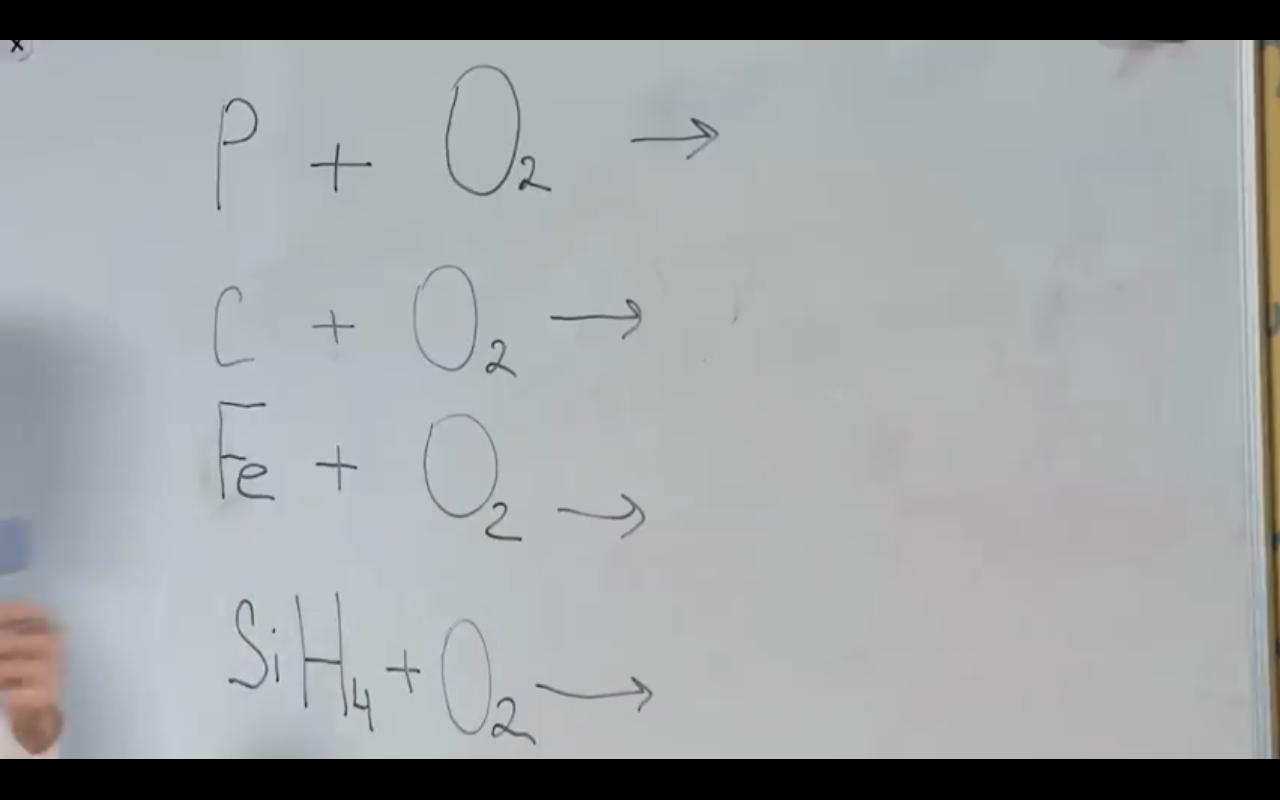 P + O₂ →
C + O₂ →
Fe + O₂ →
SiH₄ + O₂ →